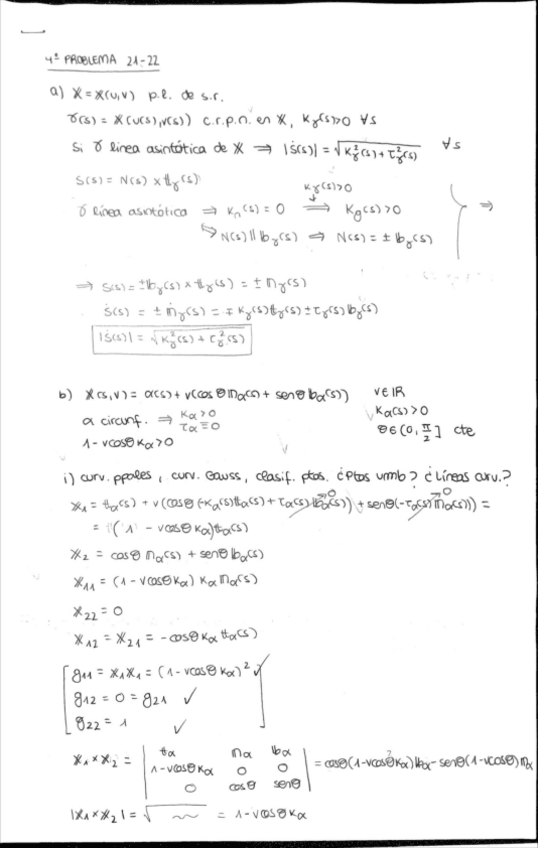 4º PROBLEMA 21-22
a) X = X(u,v) p.l. de s.r.
γ(s) = X(u(s),v(s)) c.r.p.n. en X, Kγ(s)>0 ∀s
Si γ línea asintótica de X ⇒ |Ṡ(s)| = √(K²γ(s) + τ²γ(s)) ∀s
S(s) = N(s) × tγ(s)
γ línea asintótica ⇒ Kn(s) = 0 ⇒ Kg(s) > 0
Kγ(s)>0
N(s) ∥ bγ(s) ⇒ N(s) = ± bγ(s)
⇒
⇒ S(s) = ± bγ(s) × tγ(s) = ± nγ(s)
Ṡ(s) = ± ṅγ(s) = ∓ Kγ(s) tγ(s) ± τγ(s) bγ(s)
|Ṡ(s)| = √(K²γ(s) + τ²γ(s))
b) X(s,v) = α(s) + v(cosθ nα(s) + senθ bα(s)) v∈ℝ
α circunf. ⇒ Kα>0 Kα(s)>0
τα≡0 θ∈(0, π/2] cte
1 - vcosθ Kα>0
i) curv. ppales, curv. Gauss, clasif. ptos. ¿Ptos umb? ¿Líneas curv.?
X1 = tα(s) + v(cosθ(-Kα(s)tα(s) + τα(s) bα(s)) + senθ(-τα(s) nα(s))) =
= (1 - vcosθ Kα) tα(s)
X2 = cosθ nα(s) + senθ bα(s)
X11 = (1 - vcosθ Kα) Kα nα(s)
X22 = 0
X12 = X21 = -cosθ Kα tα(s)
g11 = X1 X1 = (1 - vcosθ Kα)² ✓
g12 = 0 = g21 ✓
g22 = 1 ✓
X1 × X2 = | tα nα bα |
| 1-vcosθKα 0 0 | = cosθ(1-vcosθKα) bα - senθ(1-vcosθ) nα
| 0 cosθ senθ |
|X1 × X2| = √ = 1 - vcosθ Kα